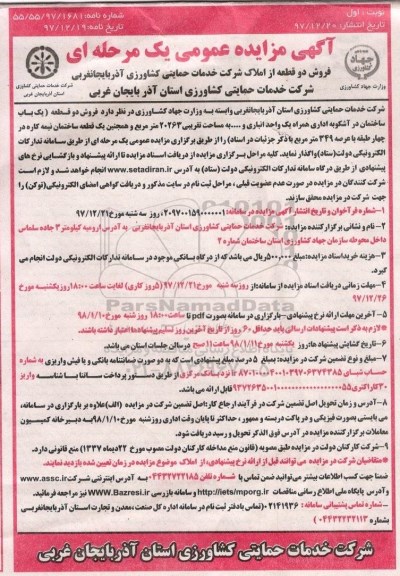 نوبت : اول
تاریخ انتشار: ۹۷/۱۲/۲۰
شماره نامه: ۵۵/۵۵/۹۷/۱۶۸۱
تاریخ نامه: ۹۷/۱۲/۱۹
آگهی مزایده عمومی یک مرحله ای
فروش دو قطعه از املاک شرکت خدمات حمایتی کشاورزی آذربایجانغربی
شرکت خدمات حمایتی کشاورزی استان آذربایجان غربی
جهاد
کشاورزی
وزارت جهاد کشاورزی
شرکت خدمات حمایتی کشاورزی
استان آذربایجان غربی
شرکت خدمات حمایتی کشاورزی استان آذربایجانغربی وابسته به وزارت جهاد کشاورزی در نظر دارد فروش دو قطعه ( یک باب
ساختمان در آشکویه اداری همراه یک واحد انباری و ....به مساحت تقریبی ۲۰۲۶۳ متر مربع و همچنین یک قطعه ساختمان نیمه کاره در
چهار طبقه با عرصه ۳۴۹ متر مربع با ذکر جزییات در اسناد) را از طریق برگزاری مزایده عمومی یک مرحله ای از طریق سامانه تدارکات
الکترونیکی دولت(ستاد)واگذار نماید. کلیه مراحل برگزاری مزایده از دریافت اسناد مزایده تا ارائه پیشنهاد و بازگشایی نرخ های
پیشنهادی از طریق درگاه سامانه تدارکات الکترونیکی دولت (ستاد) به آدرس www.setadiran.ir انجام خواهد شد و لازم است
شرکت کنندگان در مزایده در صورت عدم عضویت قبلی ، مراحل ثبت نام در سایت مذکور و دریافت گواهی امضای الکترونیکی(توکن) را
جهت شرکت در مزایده محقق سازند.
۱-شماره فراخوان و تاریخ انتشار آگهی مزایده در سامانه: ۲۰۹۷۰۰۱۵۹۰۰۰۰۰۱، روز سه شنبه مورخ۹۷/۱۲/۲۱
۲- نام و نشانی برگزار کننده مزایده: شرکت خدمات حمایتی کشاورزی استان آذربایجانغربی به آدرس ارومیه کیلومتر۳ جاده سلماس
داخل محوطه سازمان جهاد کشاورزی استان ساختمان شماره ۲
۳-هزینه خرید اسناد مزایده: مبلغ ۵۰۰,۰۰۰ریال می باشد که از درگاه بانکی موجود در سامانه تدارکات الکترونیکی دولت انجام می
گیرد.
۴-مهلت زمانی دریافت اسناد مزایده از سامانه: از روز سه شنبه مورخ۹۷/۱۲/۲۱ (۵روز کاری) لغایت ساعت ۱۸:۰۰ روز یکشنبه مورخ
۹۷/۱۲/۲۶
۵-آخرین مهلت ارائه نرخ پیشنهادی-بارگزاری در سامانه بصورت pdf تا ساعت۱۸:۰۰ روز شنبه مورخ ۹۸/۱/۱۰
*لازم به ذکر است پیشنهادات ارسالی باید حداقل ۶۰ روز از تاریخ آخرین روز تسلیم پیشنهادها اعتبار داشته باشند.
۶-تاریخ گشایش پیشنهادها: روز یکشنبه مورخ۹۸/۱/۱۱ساعت۱۱ صبح در سالن جلسات استان می باشد.
۷-مبلغ و نوع تضمین شرکت در مزایده: بمبلغ ۵ درصد مبلغ پیشنهادی است که به دو صورت ضمانتنامه بانکی و یا فیش واریزی به شماره
قابل ارائه می باشد.
۸-آدرس و زمان تحویل اصل تضمین شرکت در فرآیند ارجاع کار:اصل تضمین شرکت در مزایده (الف)علاوه بر بارگزاری در سامانه،
می بایستی بصورت فیزیکی و در پاکت دربسته و ممهور ، حداکثر تا پایان وقت اداری روز شنبه مورخ۹۸/۱/۱۰به دبیرخانه کمیسیون
معاملات برگزار کننده مزایده در آدرس فوق الذکر تحویل و رسید دریافت شود.
۹-شرکت کارکنان دولت در مزایده طبق مصوبه (قانون منع مداخله کارکنان دولت مصوب مورخ ۲۲دیماه ۱۳۳۷) منع قانونی دارد.
*متقاضیان شرکت در مزایده می توانند قبل از ارائه نرخ پیشنهادی، از املاک موضوع مزایده در زمان تعیین شده بازدید نمایند.
ضمناً جهت کسب اطلاعات بیشتر می توانید ضمن تماس با شماره تلفن ۰۴۴۳۲۷۲۲۱۸۵ به آدرس اینترنتی شرکت www.assc.ir
وآدرس پایگاه ملی اطلاع رسانی مناقصات http://iets/mporg.ir و سامانه بازرسی WWW.Bazresi.ir نیز مراجعه فرمائید.
شماره تماس پشتیبانی سامانه: ۰۲۱۴۱۹۳۶ (تماس با دفتر ثبت نام سامانه واقع در اداره کل صنعت ،معدن و تجارت اسـتان آذربایجانغربی
شماره ۰۴۴۳۲۲۳۲۱۱۲ )
شرکت خدمات حمایتی کشاورزی استان آذربایجان غربی
ParsNamadData